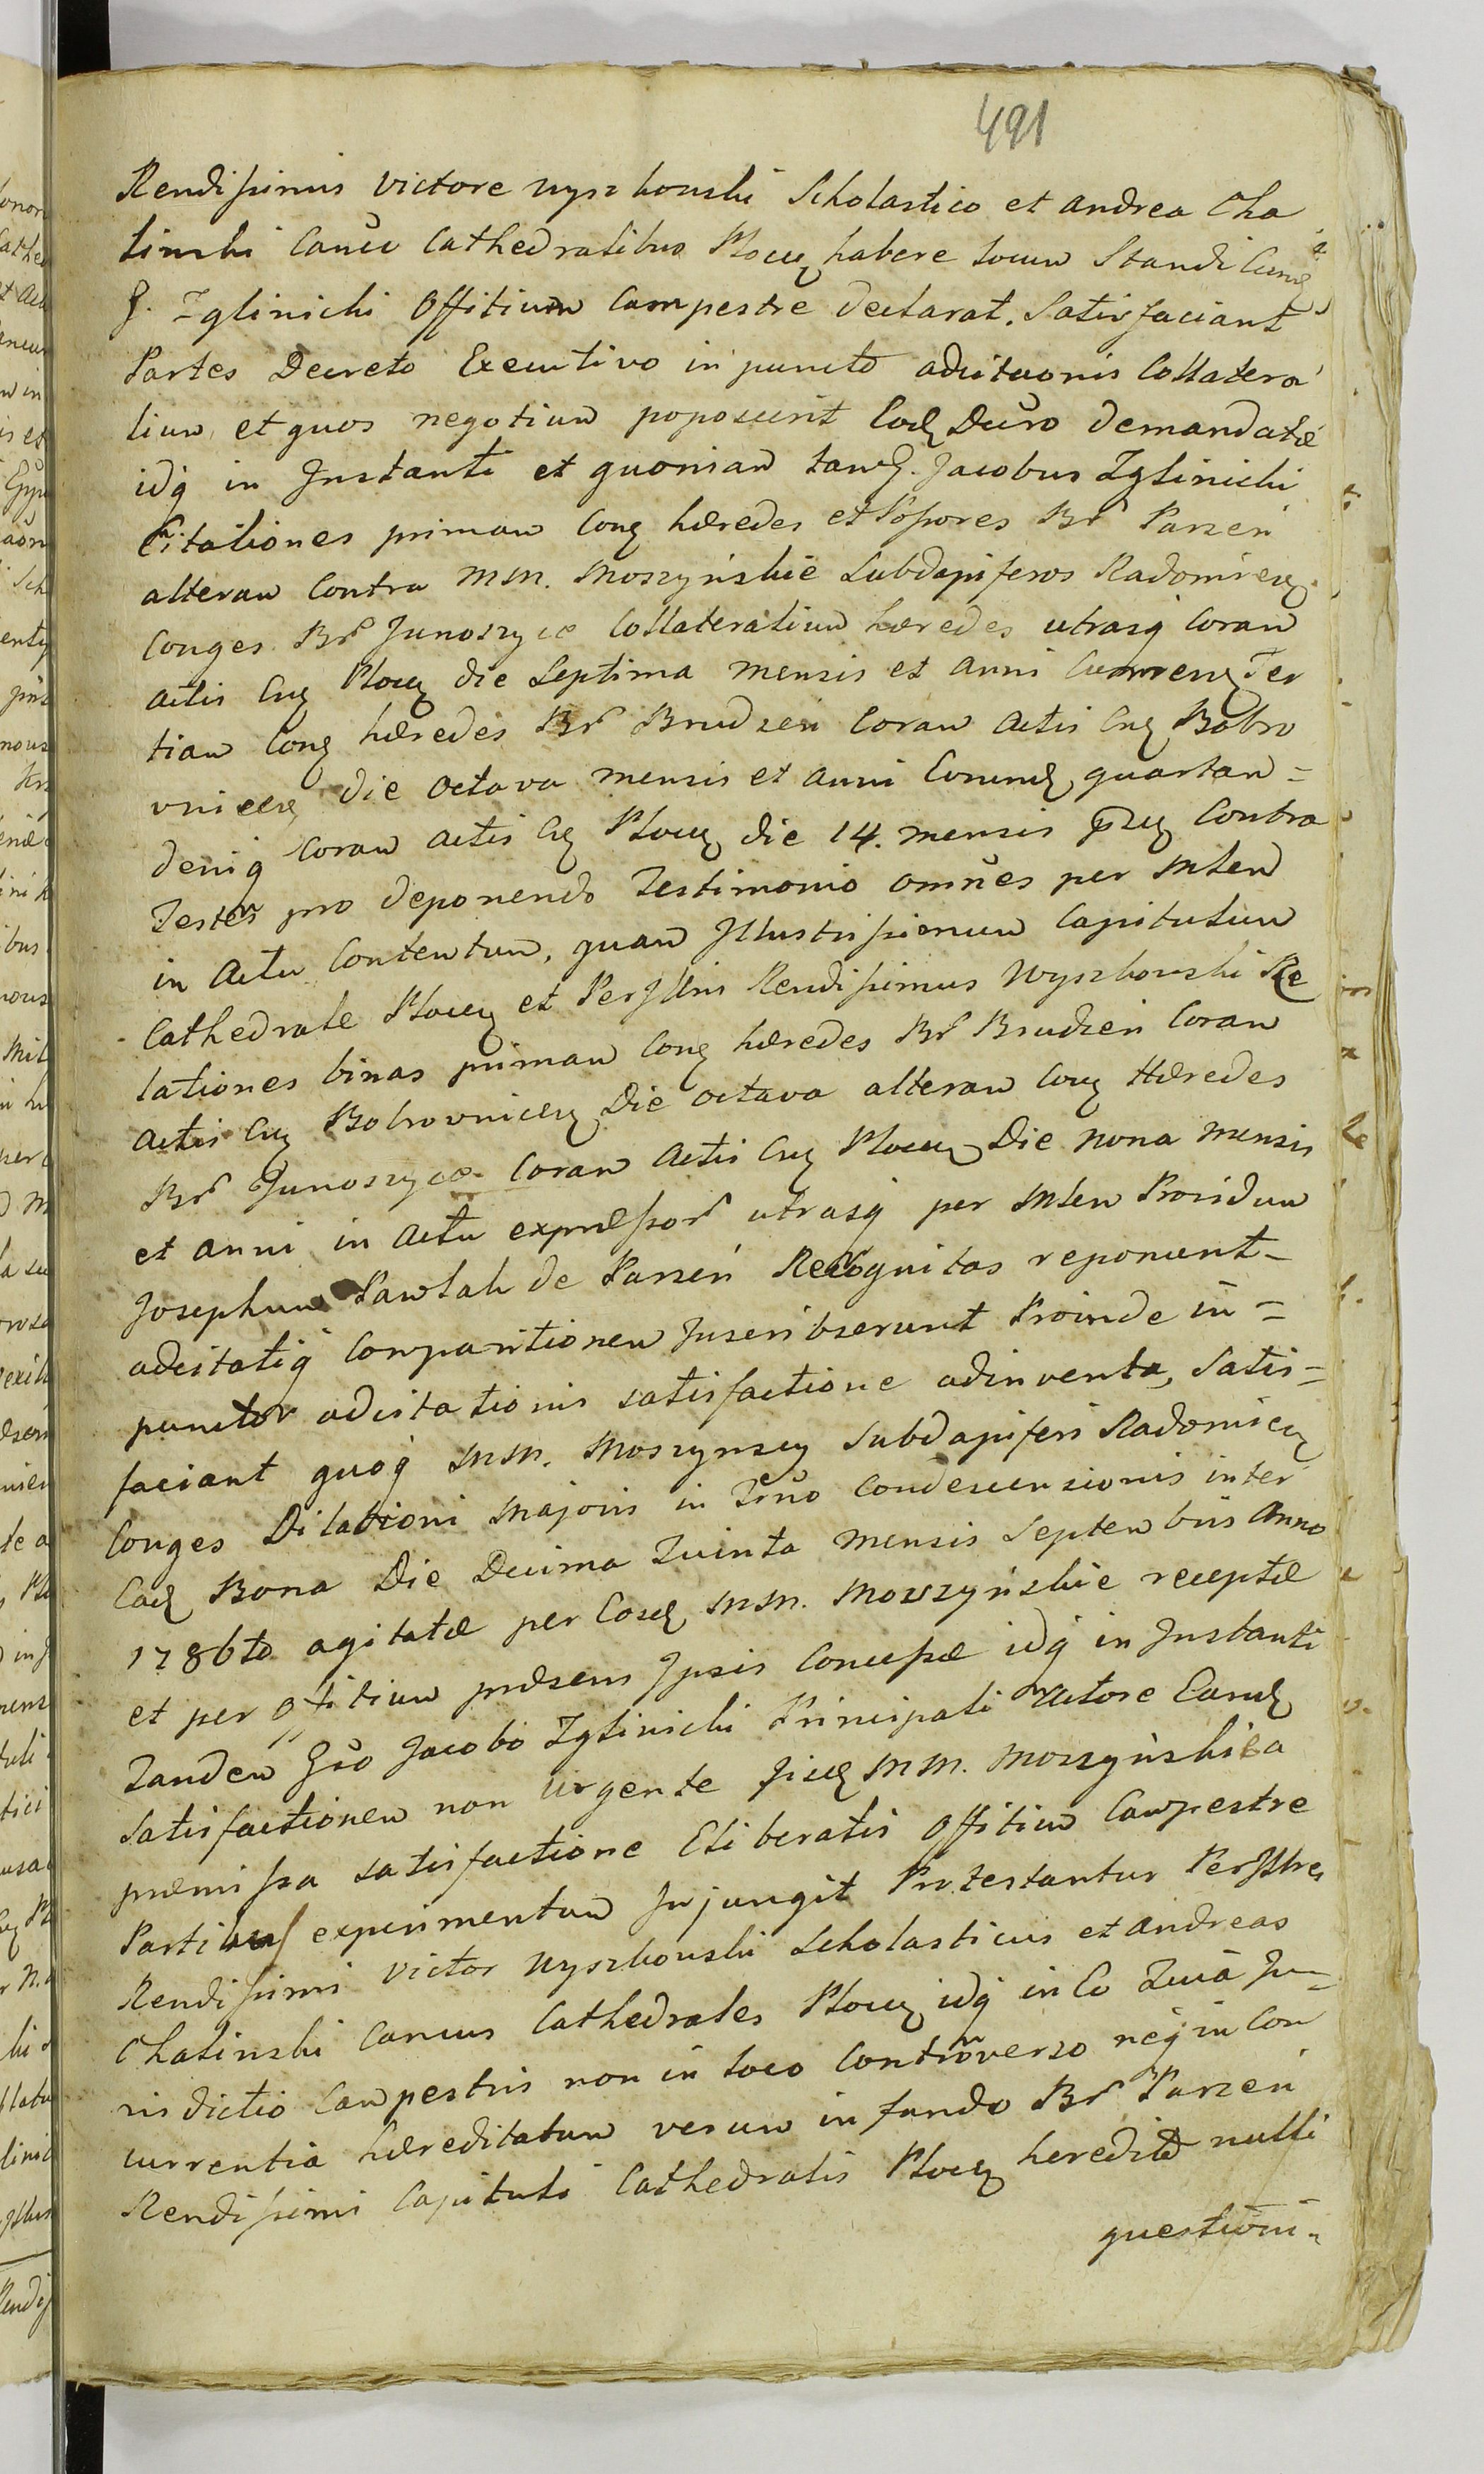 491
Rendissimis Victore Wyszkowski Scholastico et Andrea Cha
linski Cancu Cathedralibus Plocen habere locum Standi Cum
G. Zglinicki Offitium Campestre declarat. Satisfaciant
Partes Decreto Executivo in puncto adcitaonis Collatera
lium, et quos negotium poposcerit Eod Decro demandatae
idq in Instanti et quoniam tam G. Jacobus Zglinicki
Citationes primam Con haeredes et Possores Br Parzeń
alteram Contra MM. Moszyńskie Subdapiferos Radomien.
Conges Br Junoszyce Collateralium haeredes utrasq Coram
Actis Cas Plocen die Septima mensis et anni Curren Ter
tiam Con haeredes Br Brudzeń Coram Actis Cas Bobro
vnicen die Octava mensis et anni Eorund quartam =
deniq Coram Actis Cas Plocen die 14. mensis praes Contra
Testes pro deponendo Testimonio omnes per Mlem
in Actu Contentum, quam Illustrissimum Capitulum
Cathedrale Plocen et Perillris Rendissimus Wyszkowski Re
lationes binas primam Con haeredes Br Brudzeń Coram
Actis Cas Bobrovnicen Die octava alteram Con Haeredes
Br Junoszyce Coram Actis Cas Plocen Die nona mensis
et anni in Actu expressor utrasq per Mlem Providum
Josephum Pawlak de Parzeń Recognitas reponunt =
adcitatiq Comparitionem Inscribserunt Proinde in =
punctor adcitationis satisfactione adinventa, Satis =
faciant quoq MM. Moszynscy Subdapiferi Radomien
Conges Dilationi Majoris in Trno Condescensionis inter
Ead Bona Die Decima Quinta mensis Septembris Anno
1786to agitatae per Eosd MM. Moszyńskie receptae
et per Offitium praesens Ipsis Concessae idq in Instanti
Tandem Gso Jacobo Zglinicki Principali Actore Eand
Satisfactionem non urgente Iisd MM. Moszyńskie a
praemissa satisfactione Eliberatis Offitium Campestre
Partibus experimentum Injungit Protestantur Perillres
Rendissimi Victor Wyszkowski Scholasticus et Andreas
Chalinski Cancus Cathedrales Plocen idq in Eo Quia Ju =
risdictio Campestris non in loco Controverso neq in Con
currentia haereditatum verum in fundo Br Parzeń
Rendissimi Capituli Cathedralis Plocen heredit nulli
questioni =